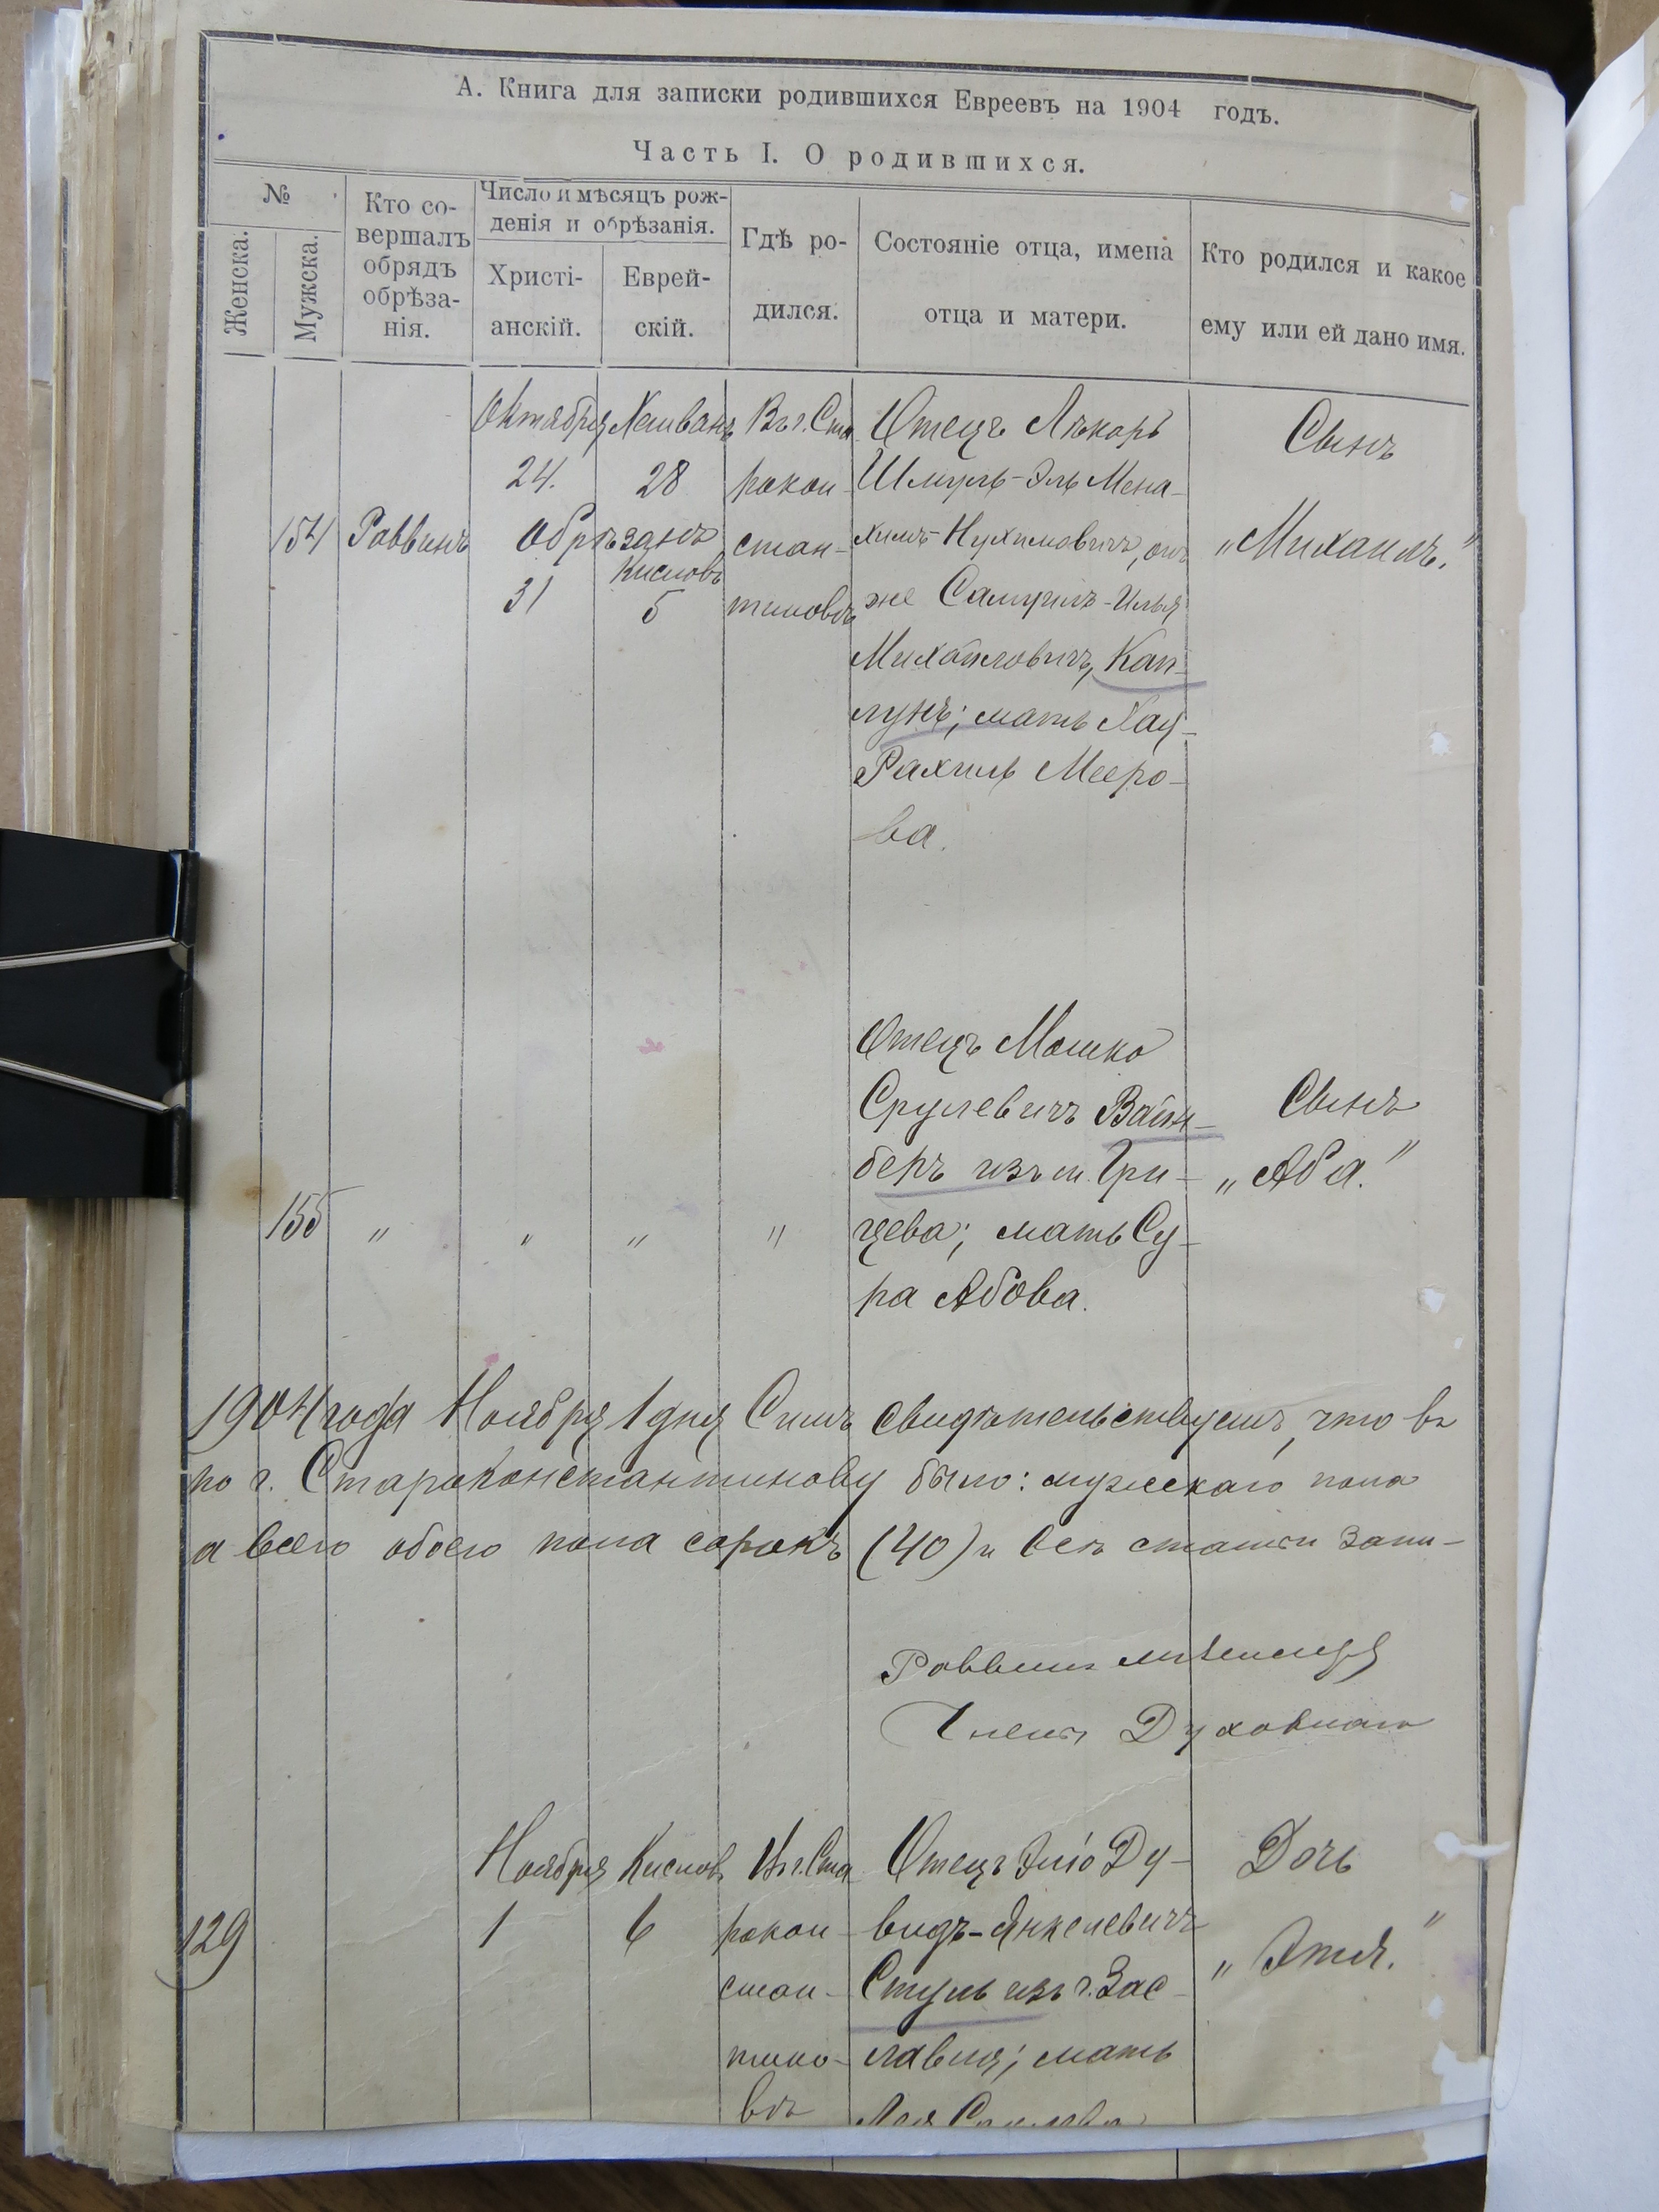 А. Книга для записки родившихся Евреевъ на 1904 годъ.
Часть I. О родившихся.
№
Женска.
Мужска.
Кто со-
вершалъ
обрядъ
обрѣза-
нія.
Число и мѣсяцъ рож-
денія и обрѣзанія.
Христі-
анскій.
Еврей-
скій.
Гдѣ ро-
дился.
Состояніе отца, имена
отца и матери.
Кто родился и какое
ему или ей дано имя.
154
Раввинъ
Октября
24.
Обрѣзанъ
31
Хешванъ
28
Кисловъ
5
Въ г. Ста
рокон-
стан-
тиновѣ
Отецъ Лѣкарь
Шмуль-Эль Мена-
химъ-Нухимовичъ, онъ
же Самуилъ-Илья
Михайловичъ, Кап-
лунъ; мать Хая-
Рахиль Мееро-
ва.
Сынъ
„Михаилъ."
155
"
"
"
"
Отецъ Мошко
Срулевичъ Вайн-
беръ изъ м. Гри-
цева; мать Су-
ра Абова.
Сынъ
„Аба."
1904 года Ноября 1 дня Симъ свидѣтельствуемъ, что въ
по г. Староконстантинову было: мужескаго пола
а всего обоего пола сорокъ (40) и всѣ статьи запи-
Раввинъ
Членъ Духовнаго
129
Ноября
1
Кислов
6
Въ г. Ста
рокон-
стан-
тино-
вѣ
Отецъ Эліо Ду-
видъ-Янкелевичъ
Стуль изъ г. Зас-
лавля; мать
Дочь
„Этля."